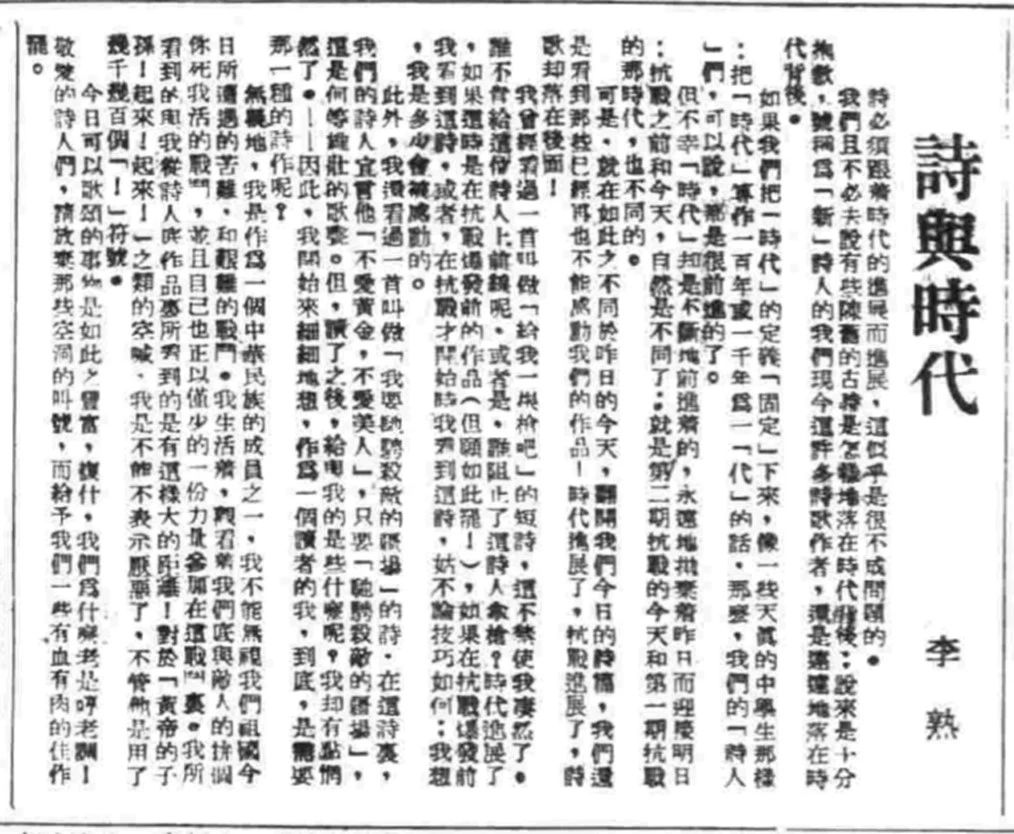 詩與時代
李熟
詩必須跟着時代的進展而進展，這似乎是很不成問題的。
我們且不必去說有些陳舊的古詩是怎樣地落在時代背後：說來是十分
抱歉，號稱爲「新」詩人的我們現今這許多詩歌作者，還是遠遠地落在時
代背後。
如果我們把「時代」的定義「固定」下來，像一些天眞的中學生那樣
：把「時代」算作一百年或一千年爲一「代」的話，那麽，我們的「詩人
」們，可以說，都是很前進的了。
但不幸「時代」却是不斷地前進着的，永遠地拋棄着昨日而迎接明日
：抗戰之前和今天，自然是不同了：就是第二期抗戰的今天和第一期抗戰
的那時代，也不同的。
可是，就在如此之不同於昨日的今天，翻開我們今日的詩篇，我們還
是看到那些已經再也不能感動我們的作品！時代進展了，抗戰進展了，詩
歌却落在後面！
我曾經看過一首叫做「給我一桿槍吧」的短詩，這不禁使我凄然了。
誰不肯給這位詩人上前線呢，或者是，誰阻止了這詩人拿槍？時代進展了
，如果這時是在抗戰爆發前的作品（但願如此罷！），如果在抗戰爆發前
我看到這詩，或者，在抗戰才開始時我看到這詩，姑不論技巧如何：我想
，我是多少會被感動的。
此外，我還看過一首叫做「我要馳騁殺敵的疆場」的詩．在這詩裏，
我們的詩人宣言他「不愛黃金，不愛美人」，只要「馳騁殺敵的疆場」，
這是何等雄壯的歌聲。但，讀了之後，給與我的是些什麽呢？我却有點惘
然了。——因此，我開始來細細地想，作爲一個讀者的我，到底，是需要
那一種的詩作呢？
無疑地，我是作爲一個中華民族的成員之一，我不能無視我們祖國今
日所遭遇的苦難，和艱難的戰鬥。我生活着，觀看着我們底與敵人的拚個
你死我活的戰鬥，並且自己也正以僅少的一份力量參加在這戰鬥裏。我所
看到的與我從詩人底作品裏所看到的是有這樣大的距離！對於「黃帝的子
孫！起來！起來！」之類的空喊，我是不能不表示厭惡了，不管他是用了
幾千幾百個「！」符號。
今日可以歌頌的事物是如此之豐富，復什，我們爲什麽老是哼老調！
敬愛的詩人們，請放棄那些空洞的叫號，而給予我們一些有血有肉的佳作
罷。